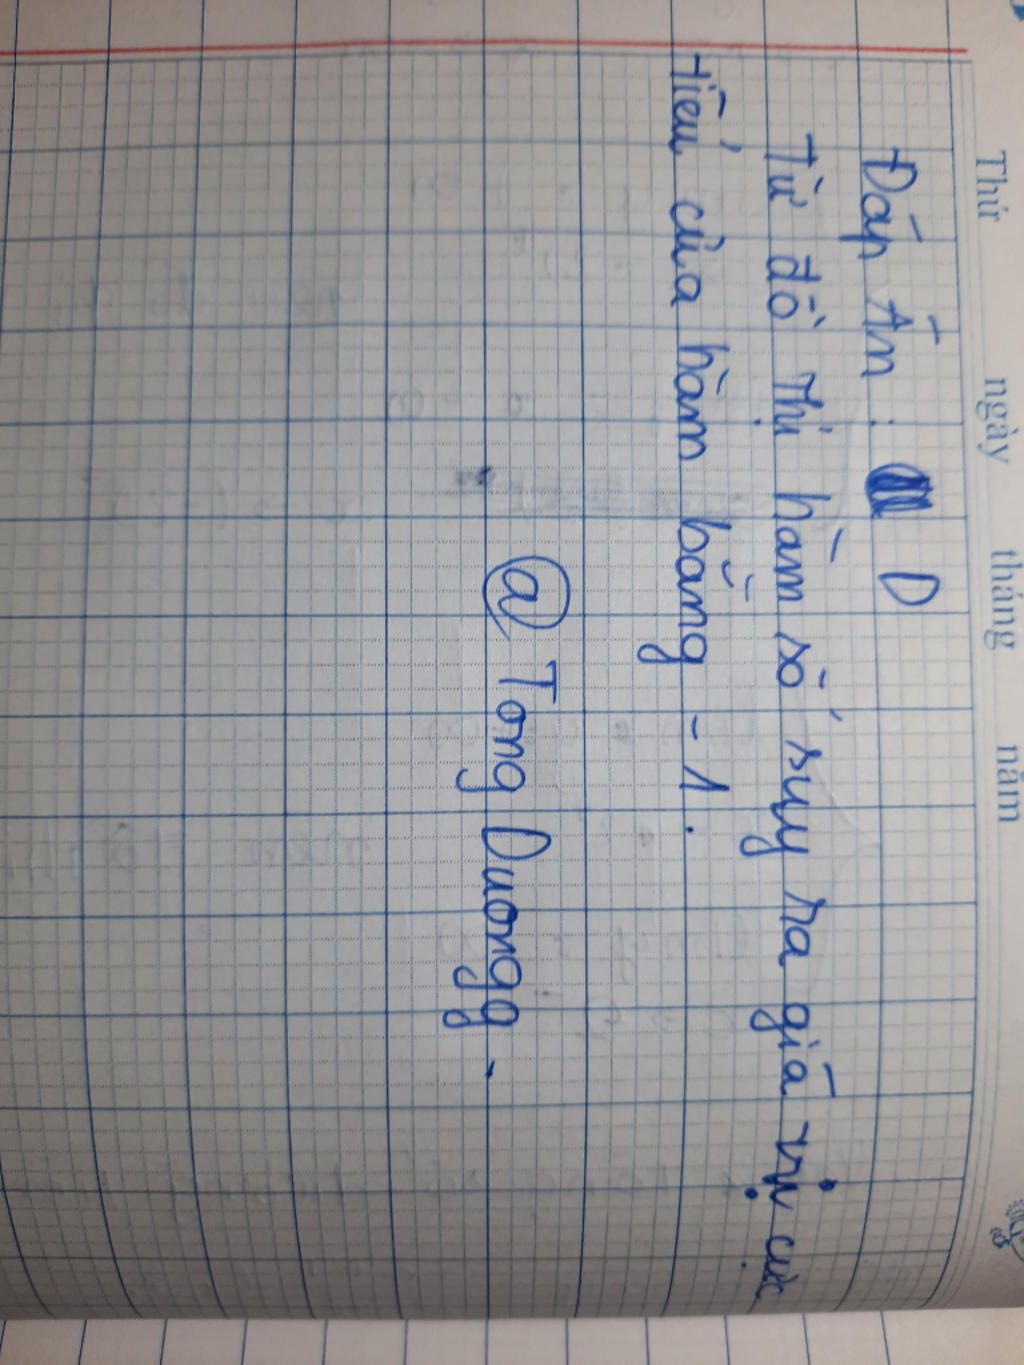 Thứ ngày tháng năm
Đáp Án : D
Từ đồ thị hàm số suy ra giá trị cực
tiểu của hàm bằng -1.
@ Tong Duongg